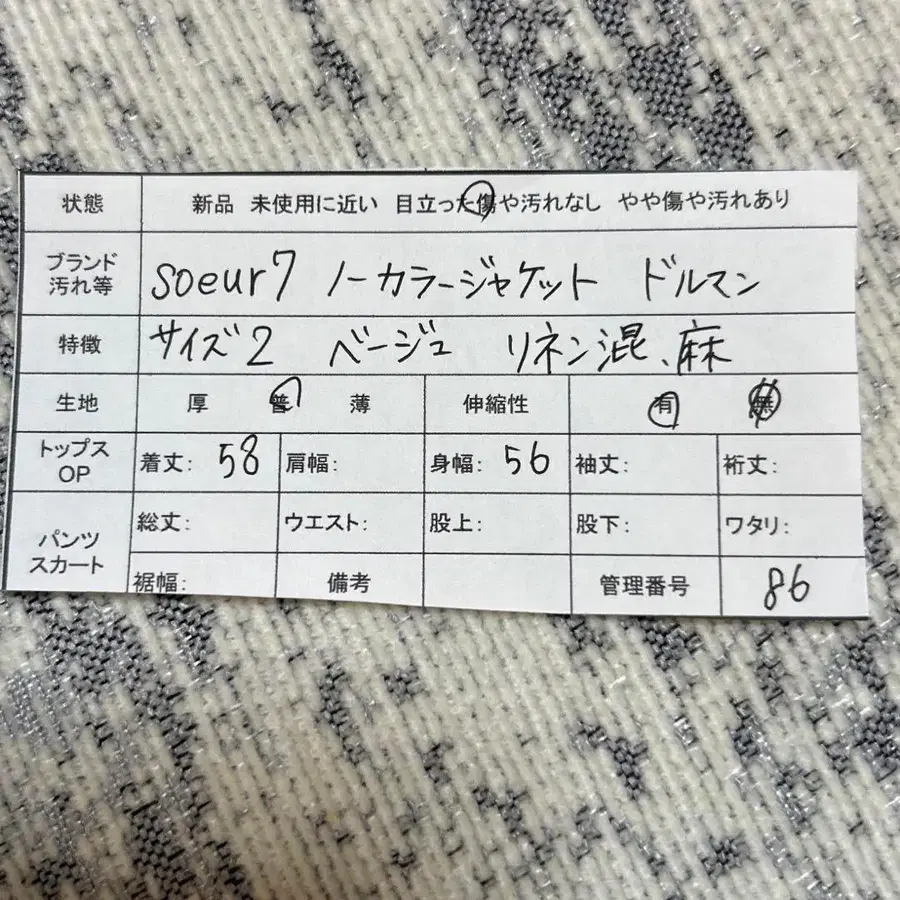 状態 新品 未使用に近い 目立った傷や汚れなし やや傷や汚れあり
ブランド
汚れ等 soeur7 ノーカラージャケット ドルマン
特徴 サイズ2 ベージュ リネン混、麻
生地 厚 普 薄 伸縮性 有 無
トップス
OP 着丈: 58 肩幅: 身幅: 56 袖丈: 裄丈:
パンツ
スカート 総丈: ウエスト: 股上: 股下: ワタリ:
裾幅: 備考 管理番号 86